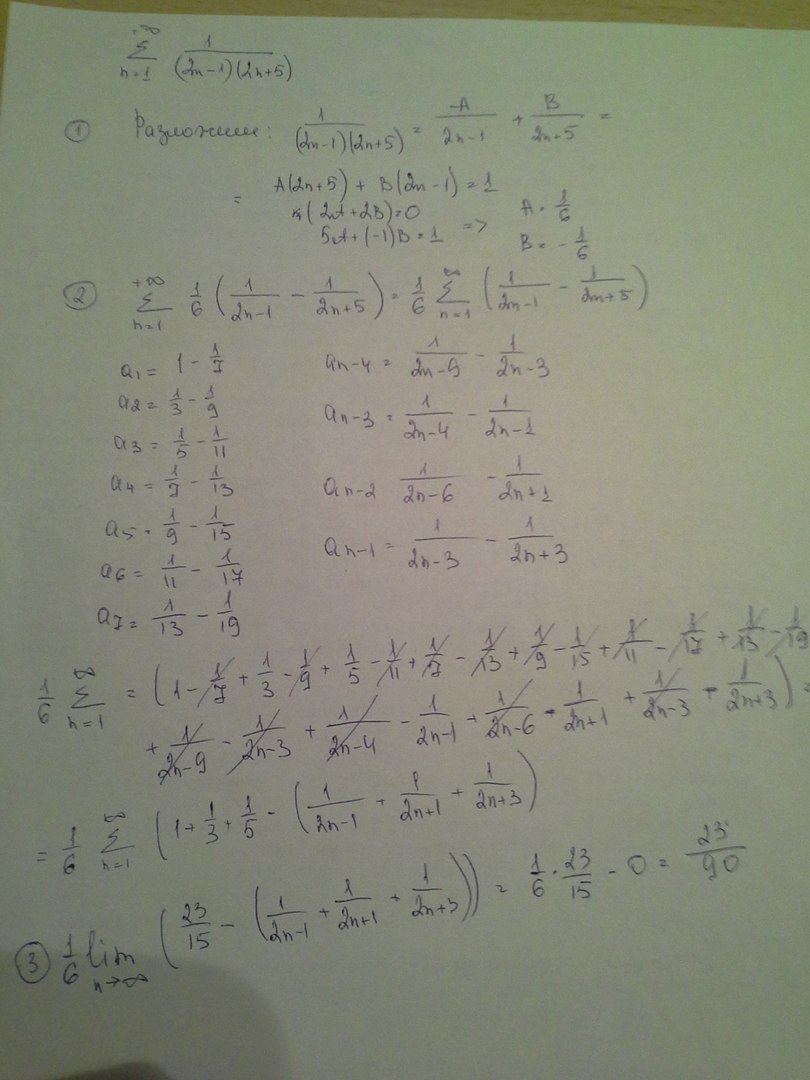 +∞ Σ n=1 1/((2n-1)(2n+5))
① Разложим: 1/((2n-1)(2n+5)) = A/(2n-1) + B/(2n+5) =
= A(2n+5) + B(2n-1) = 1
n(2A+2B)=0
5A+(-1)B=1 => A = 1/6
B = -1/6
② +∞ Σ n=1 1/6 (1/(2n-1) - 1/(2n+5)) = 1/6 ∞ Σ n=1 (1/(2n-1) - 1/(2n+5))
a1 = 1 - 1/7
a2 = 1/3 - 1/9
a3 = 1/5 - 1/11
a4 = 1/7 - 1/13
a5 = 1/9 - 1/15
a6 = 1/11 - 1/17
a7 = 1/13 - 1/19
an-4 = 1/(2n-9) - 1/(2n-3)
an-3 = 1/(2n-4) - 1/(2n-1)
an-2 1/(2n-6) - 1/(2n+1)
an-1 = 1/(2n-3) - 1/(2n+3)
1/6 ∞ Σ n=1 = (1 - 1/7 + 1/3 - 1/9 + 1/5 - 1/11 + 1/7 - 1/13 + 1/9 - 1/15 + 1/11 - 1/17 + 1/13 - 1/19
+ 1/(2n-9) - 1/(2n-3) + 1/(2n-4) - 1/(2n-1) + 1/(2n-6) - 1/(2n+1) + 1/(2n-3) - 1/(2n+3)) =
= 1/6 ∞ Σ n=1 (1 + 1/3 + 1/5 - (1/(2n-1) + 1/(2n+1) + 1/(2n+3))
③ 1/6 lim n→∞ (23/15 - (1/(2n-1) + 1/(2n+1) + 1/(2n+3))) = 1/6 · 23/15 - 0 = 23/90